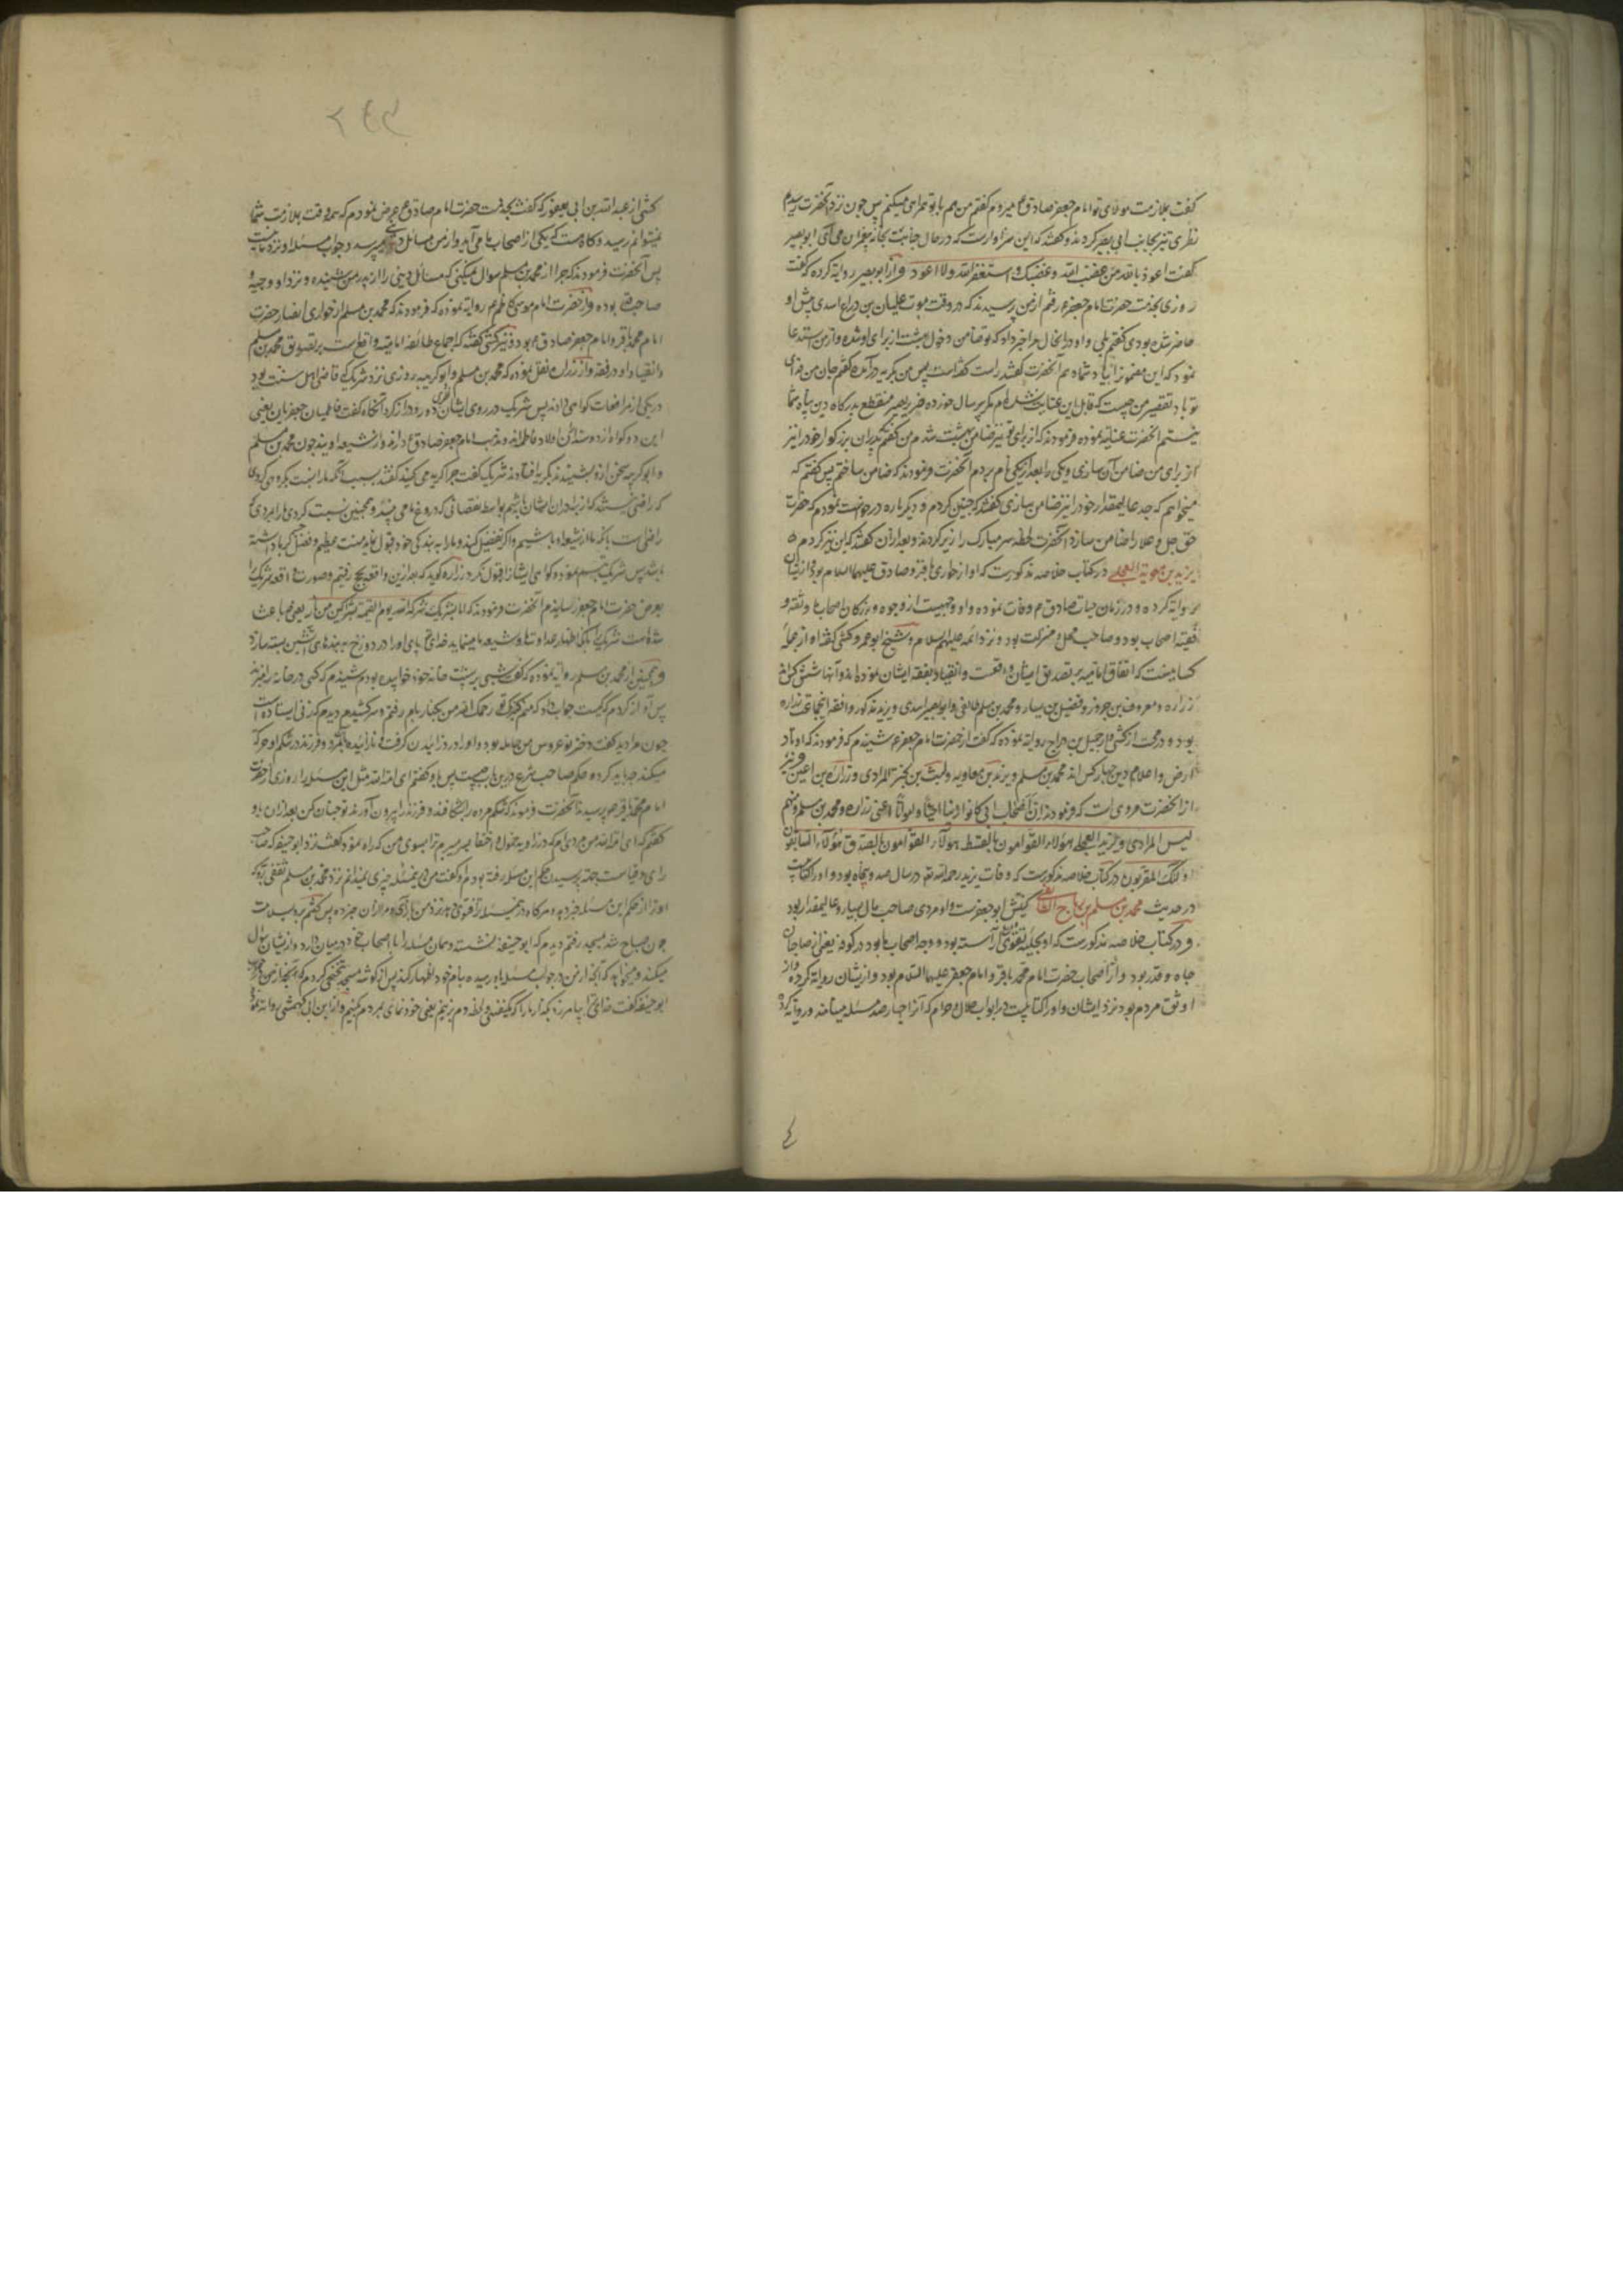 کفت بملازمت مولای تو امام جعفر صادق ع میروم کفتم من هم با تو همراهی میکنم پس چون نزد آنحضرت رسیدیم
نظری تیز بجانب ابی بصیر کردند و کفتند که این سزاوارست که در حال جنابت بخانه پیغمبران می آئی ابو بصیر
کفت اعوذ بالله من غضب الله و غضبک و استغفر الله و لا اعود و از ابو بصیر روایة کرده که کفت
روزی بخدمت حضرت امام جعفر ع رفتم از من پرسیدند که در وقت موت علیان بن دراع اسدی پیش او
حاضر شده بودی کفتم بلی و او در انحال مرا خبر داد که تو ضامن دخول بهشت از برای او شده و از من استدعا
نمود که این معنی را بیاد شما دهم آنحضرت کفتند راست کفته است پس من بکریه در آمده کفتم جان من فدای
تو باد تقصیر من چیست که قابل این عنایت نشده ام مکر پیر سال خورده ضریر بصیر منقطع بدرکاه دین پناه شما
نیستم آنحضرت عنایة نموده فرمودند که از برای تو نیز ضامن بهشت شدم من کفتم پدران بزرکوار خود را نیز
از برای من ضامن آن سازی و یکی را بعد از یکی نام بردم آنحضرت فرمودند که ضامن ساختم پس کفتم که
میخواهم که جد عالیمقدار خود را نیز ضامن سازی کفتند که چنین کردم و دیکر باره درخواست نمودم که حضرت
حق جل و علا را ضامن سازد آنحضرت لحظه سر مبارک را زیر کردند و بعد از ان کفتند که این نیز کردم
یزید بن معویة العجلی در کتاب خلاصه مذکورست که او از حواری باقر و صادق علیهما السلام بود و از ایشان
روایة کرده و در زمان حیات صادق ع وفات نموده و او وجهیست از وجوه و بزرکان اصحاب ما و ثقه و
فقیه اصحاب بود و صاحب محل و منزلت بود و نزد ائمه علیهم السلام و شیخ ابو عمرو کشی کفته او از جمله
کسانیست که اتفاق امامیه بر تصدیق ایشان واقعست و انقیاد بفقه ایشان نموده اند و آنها شش کس اند
زراره و معروف بن خربوذ و فضیل بن یسار و محمد بن مسلم طائفی و ابو بصیر اسدی و یزید مذکور و افقه اینجماعت زراره
بود و در صحت از کشی از جمیل بن دراج روایة نموده که کفت از حضرت امام جعفر ع شنیدم که فرمودند که اوتاد
ارض و اعلام دین چهار کس اند محمد بن مسلم و یزید بن معاویه و لیث بن بختری المرادی و زرارة بن اعین و نیز
از آنحضرت مروی است که فرمودند ان اصحاب ابی کانوا زینا احیاء و امواتا اعنی زراره و محمد بن مسلم و منهم
لیث المرادی و یزید العجلی هؤلاء القوامون بالقسط هؤلاء القوامون بالصدق هؤلاء السابقون
اولئک المقربون در کتاب خلاصه مذکورست که وفات یزید رحمه الله در سال صد و پنجاه بود و او را کتابیست
در حدیث محمد بن مسلم بن رباح الثقفی کنیتش ابو جعفرست و او مردی صاحب مال بسیار و عالیمقدار بود
و در کتاب خلاصه مذکورست که او بحلیه تقوی آراسته بود و وجه اصحاب ما بود در کوفه یعنی از صاحبان
جاه و قدر بود و از اصحاب حضرت امام محمد باقر و امام جعفر علیهما السلام بود و از ایشان روایة کرده و از
اوثق مردم بود نزد ایشان و او را کتابیست در ابواب حلال و حرام که آنرا چهار صد مسئله مینامند و روایة کرده
٤
٢٤٩
کشی از عبد الله بن ابی یعفور که کفت بخدمت حضرت امام صادق ع عرض نمودم که همه وقت بملازمت شما
نمیتوانم رسید و کاه هست که یکی از اصحاب ما می آید و از من مسائل دینی میپرسد و جواب مسئله او نزد ما نیست
پس آنحضرت فرمودند که چرا از محمد بن مسلم سوال نمیکنی که مسائل دینی را از پدر من شنیده و نزد او وجیه و
صاحب قدر بوده و از حضرت امام موسی کاظم ع روایة نموده که فرمودند که محمد بن مسلم از حواری انصار حضرت
امام محمد باقر و امام جعفر صادق ع بود و نیز کشی کفته که اجماع طائفه امامیه واقع است بر تصدیق محمد بن مسلم
و انقیاد او در فقه و از زراره نقل نموده که محمد بن مسلم و ابو کریبه روزی نزد شریک که قاضی اهل سنت بود
در یکی از مرافعات کواهی دادند پس شریک در روی ایشان نظری دور و دراز کرد آنکاه کفت فاطمیان جعفریان یعنی
این دو کواه از دوستداران اولاد فاطمه اند و مذهب امام جعفر صادق ع دارند و از شیعه اویند چون محمد بن مسلم
و ابو کریبه سخن او را بشنیدند بکریه افتادند شریک کفت چرا کریه می کنید کفتند بسبب آنکه ما را نسبت بکروهی کردی
که راضی نیستند که از برادران ایشان باشیم بواسطه نقصانی که در ورع ما می بینند و همچنین نسبت کردی ما را بمردی که
راضی است بانکه ما از شیعه او باشیم و اکر تفضل کند و ما را به بندکی خود قبول نماید منت عظیم و فضل بر ما داشته
باشد پس شریک تبسم نموده و کواهی ایشان را قبول کرد و زراره کوید که بعد از ین واقعه بحج رفتیم و صورت واقعه شریک را
بعرض حضرت امام جعفر رسانیدم آنحضرت فرمودند که ما لشریک شرکه الله یوم القیمة بشراکین من نار یعنی چه باعث
شده است شریک را بانکه اظهار عداوت ما و شیعه ما مینماید خدای تعالی پای او را در دوزخ به بندهای آتشین بسته سازد
و همچنین از محمد بن مسلم روایة نموده که کفت شبی بر پشت خانه خود خوابیده بودم شنیدم که کسی در خانه را میزند
پس آواز کردم که کیست جواب داد که منم کنیزک تو رحمک الله من بکنار بام رفتم و سر کشیدم دیدم که زنی ایستاده است
چون مرا دید کفت دختر نو عروس من حامله بود و او را درد زائیدن کرفت و نازائیده بمرد و فرزند در شکم او حرکت
میکند چه باید کرد و حکم صاحب شرع درین باب چیست پس باو کفتم ای امة الله مثل این مسئله را روزی از حضرت
امام محمد باقر ع پرسیدند آنحضرت فرمودند که شکم مرده را بشکافند و فرزند را بیرون آورند تو چنان کن بعد از ان باو
کفتم که ای امة الله من مردی ام که در زاویه خمول و اختفا بسر میبرم ترا بسوی من که راه نمود کفت نزد ابو حنیفه که صاحب
رای و قیاست جهة پرسیدن حکم این مسئله رفته بودم او کفت من درین مسئله چیزی نمیدانم نزد محمد بن مسلم ثقفی برو که
او ترا از حکم این مسئله خبر دهد و هرکاه در ین مسئله ترا فتوی دهد نزد من بازآی و مرا از ان خبر ده پس کفتم برو بسلامت
چون صباح شد بمسجد رفتم دیدم که ابو حنیفه نشسته و همان مسئله را با اصحاب خود در میان دارد و از ایشان سؤال
میکند و میخواهد که آنچه از من در جواب مسئله باو رسیده بنام خود اظهار کند پس از کوشه مسجد تنحنحی کردم
ابو حنیفه کفت خدای ترا بیامرزد بکذار ما را که یکنفس و لحظه دم بزنیم یعنی خود نمای بمردم کنیم و از ابن ابی کهمش روایة نموده